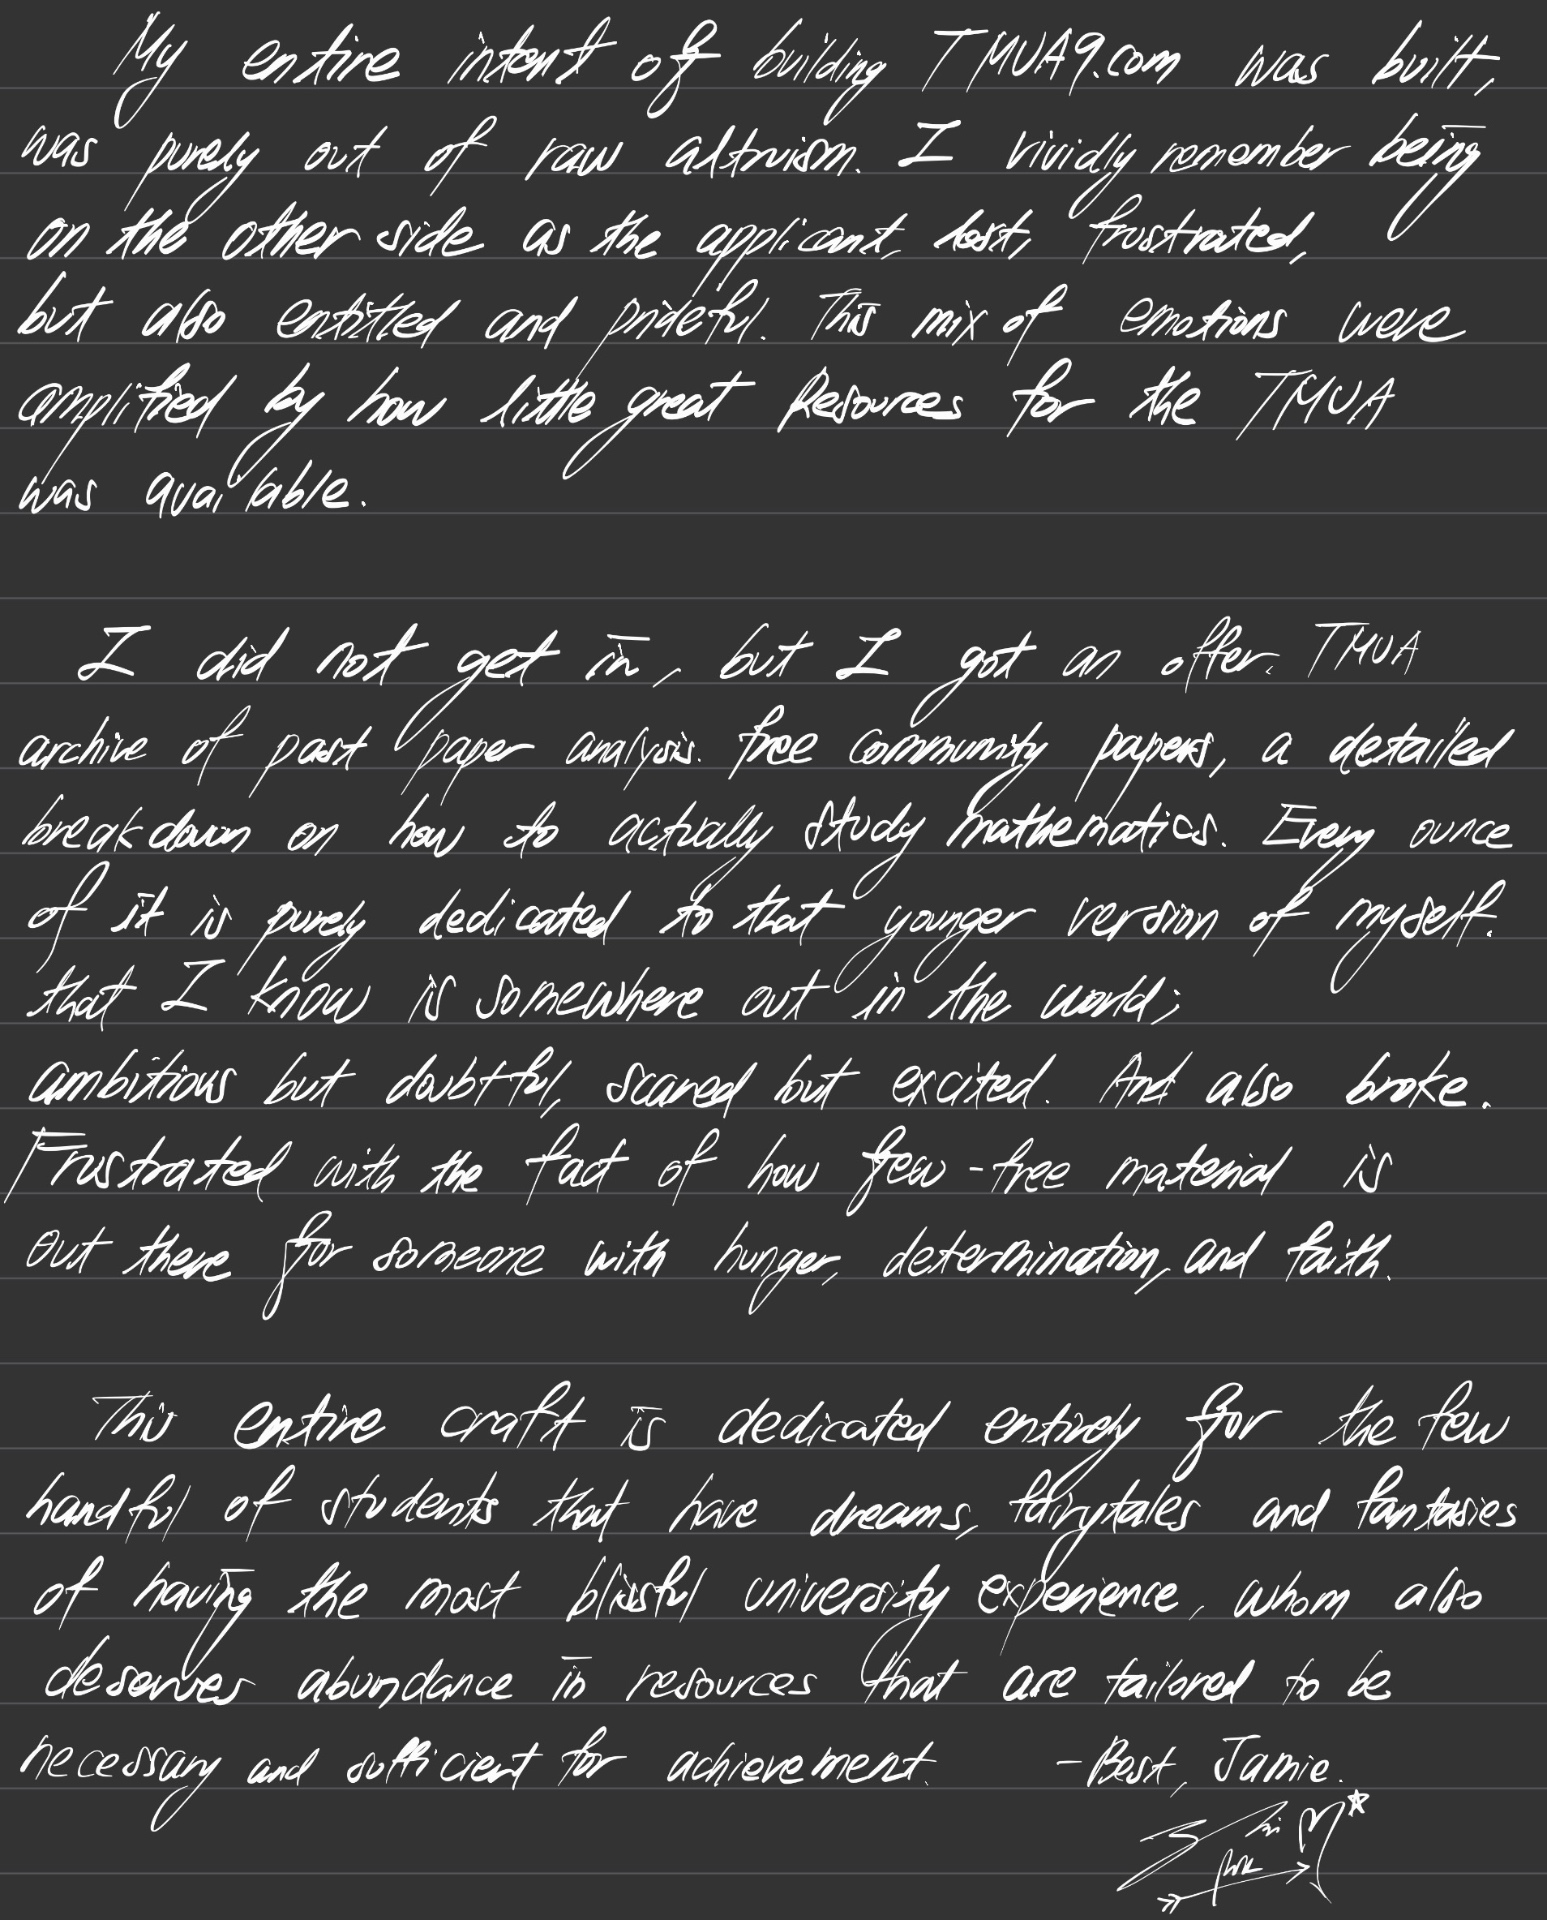 My entire intent of building TMUA9.com was built,
was purely out of raw altruism. I vividly remember being
on the other side as the applicant, lost, frustrated,
but also entitled and prideful. This mix of emotions were
amplified by how little great Resources for the TMUA
was available.
I did not get in, but I got an offer. TMUA
archive of past paper analysis. free community papers, a detailed
breakdown on how to actually study mathematics. Every ounce
of it is purely dedicated to that younger version of myself.
that I know is somewhere out in the world;
ambitious but doubtful, scared but excited. And also broke.
Frustrated with the fact of how few-free material is
out there for someone with hunger, determination, and faith.
This entire craft is dedicated entirely for the few
handful of students that have dreams, fairytales and fantasies
of having the most blissful university experience, whom also
deserves abundance in resources that are tailored to be
necessary and sufficient for achievement. -Best, Jamie.